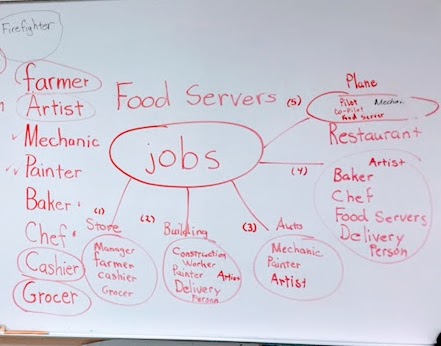 Firefighter
farmer
Artist
Mechanic
Painter
Baker
Chef
Cashier
Grocer
Food Servers
jobs
(1)
Store
Manager
farmer
cashier
Grocer
(2)
Building
Construction
Worker
Painter Artist
Delivery
Person
(3) Auto
Mechanic
Painter
Artist
(4)
Restaurant
Artist
Baker
Chef
Food Servers
Delivery
Person
(5)
Plane
Pilot Mechanic
Co-Pilot
Food Server